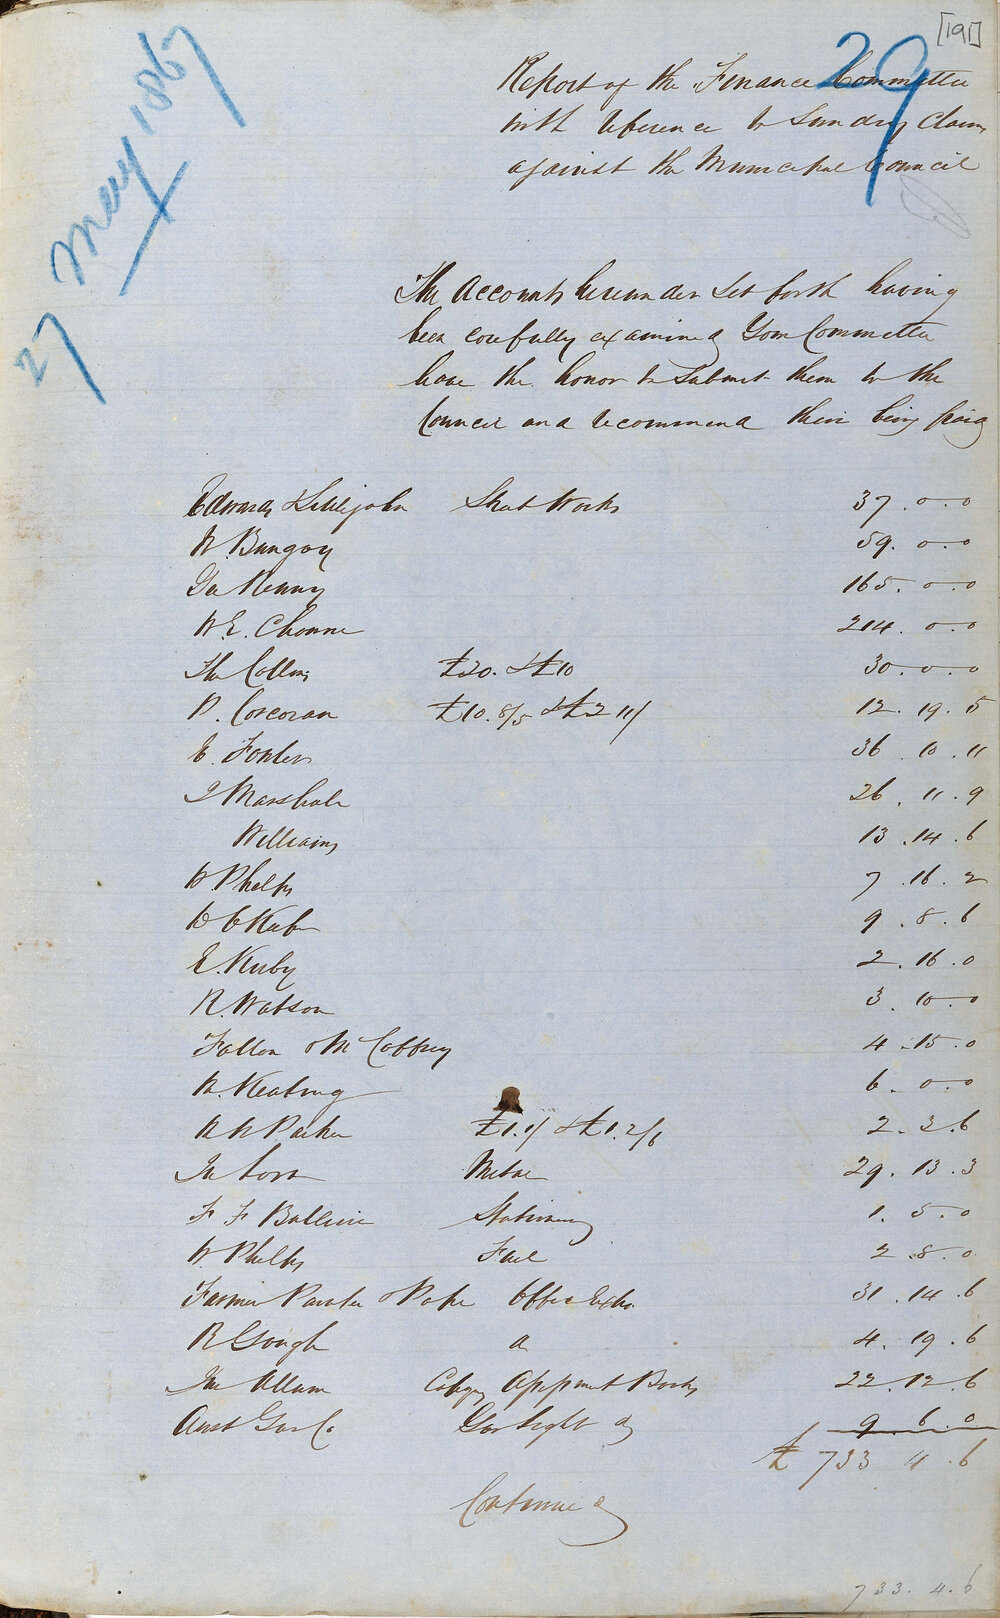 [191]
29
27 May 1867
Report of the Finance Committee
with reference to Sundry Claims
against the Municipal Council
The Accounts hereunder Set forth having
been carefully examined Your Committee
have the honor to Submit them to the
Council and recommend their being paid
Edwards & Littlejohn Street Works 37.0.0
W. Bungay 59.0.0
Geo Renny 165.0.0
W.E. Channe 214.0.0
Tho Collins £20. & £10 30.0.0
P. Corcoran £10.8/5 & £2 11/ 12.19.5
E. Fowler 36.10.11
J Marshall 26.11.9
Williams 13.14.6
W Phelps 7.16.2
9.8.6
E. Kirby 2.16.0
R. Watson 3.10.0
Fallon & McCaffrey 4.15.0
W. Keating 6.0.0
Parker £1.1/ & £1.2/6 2.3.6
Metal 29.13.3
F F Bailliere Stationery 1.5.0
W. Phelps Fuel 2.8.0
Farmer Painter & Pope Office Extra 31.14.6
R Gough 4.19.6
Jas Allam Copying Assessment Books 22.12.6
Aust Gas Co. Gas Light 9.6.0
£ 733 4.6
Continued
733.4.6